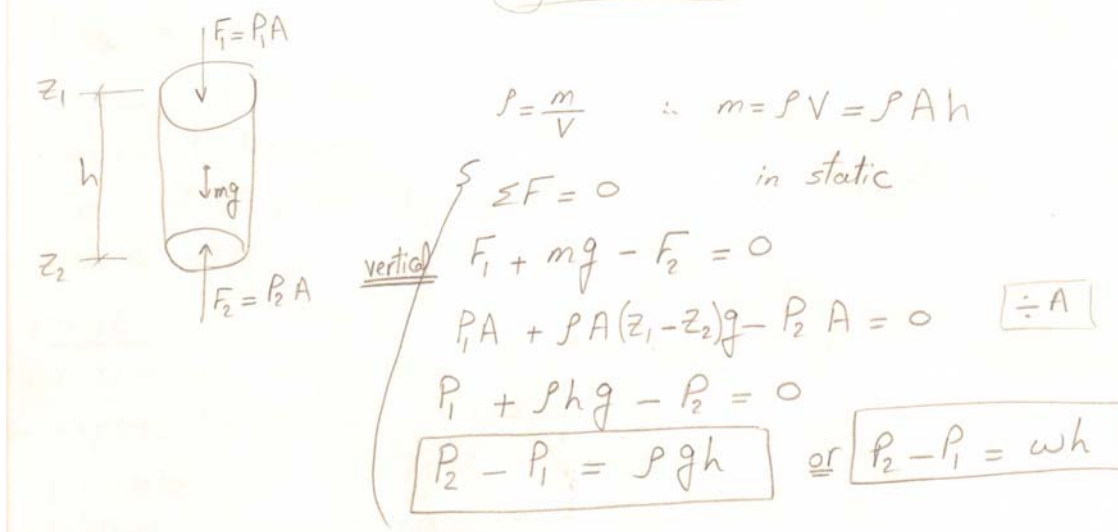 F₁ = P₁A
z₁
h
↓mg
z₂
F₂ = P₂ A
ρ = m/V ∴ m = ρ V = ρ A h
ΣF = 0 in static
vertical F₁ + mg − F₂ = 0
P₁A + ρ A(z₁ − z₂)g − P₂ A = 0 ÷ A
P₁ + ρhg − P₂ = 0
P₂ − P₁ = ρ gh or P₂ − P₁ = ωh